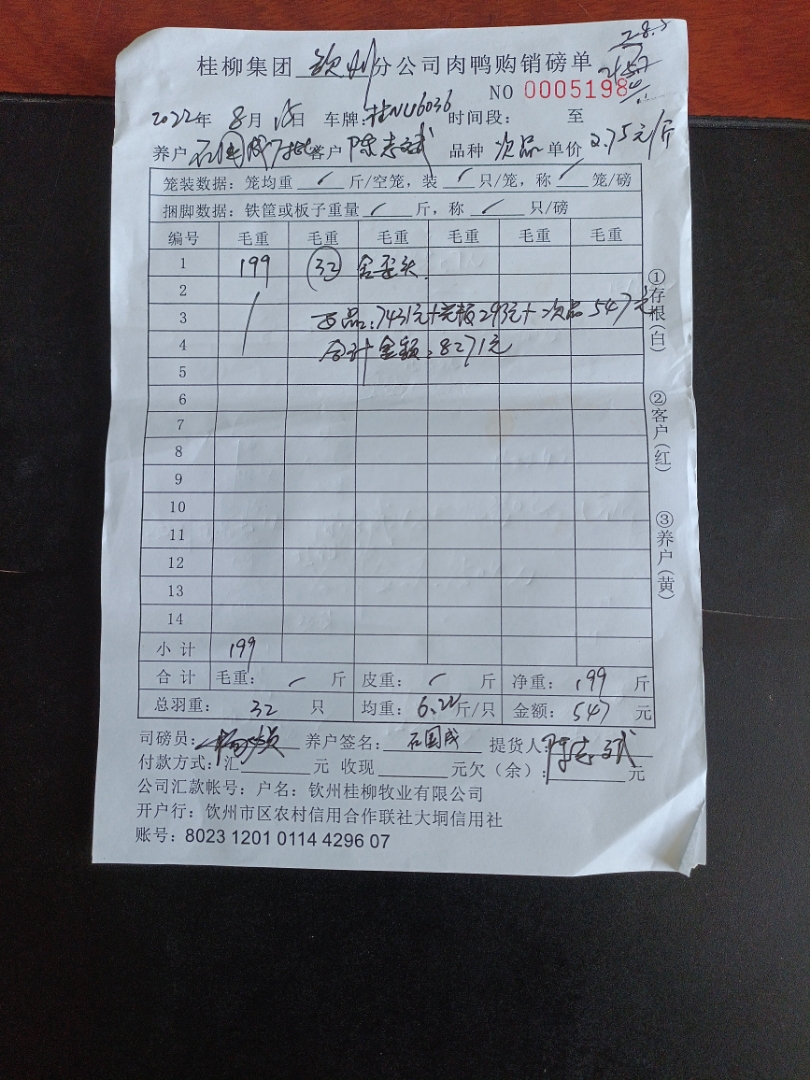 桂柳集团 钦州 分公司肉鸭购销磅单
28.5
2157
NO 0005198
2022年 8月 15日 车牌:桂NU6036 时间段: 至
养户 石国成 客户 陈志斌 品种 次品 单价 2.75元/斤
笼装数据:笼均重 / 斤/空笼,装 / 只/笼,称 / 笼/磅
捆脚数据:铁筐或板子重量 / 斤,称 / 只/磅
编号 毛重 毛重 毛重 毛重 毛重 毛重
1 199 32 含歪头
2
3 正品:7431元+壳板293元+次品547元
4 合计金额:8271元
5
6
7
8
9
10
11
12
13
14
小计 199
合计 毛重: / 斤 皮重: / 斤 净重: 199 斤
总羽重: 32 只 均重: 6.22斤/只 金额: 547 元
司磅员: 养户签名: 石国成 提货人: 陈志斌
付款方式:汇 元 收现 元欠(余): 元
公司汇款帐号:户名:钦州桂柳牧业有限公司
开户行:钦州市区农村信用合作联社大垌信用社
账号:8023 1201 0114 4296 07
①存根(白)
②客户(红)
③养户(黄)